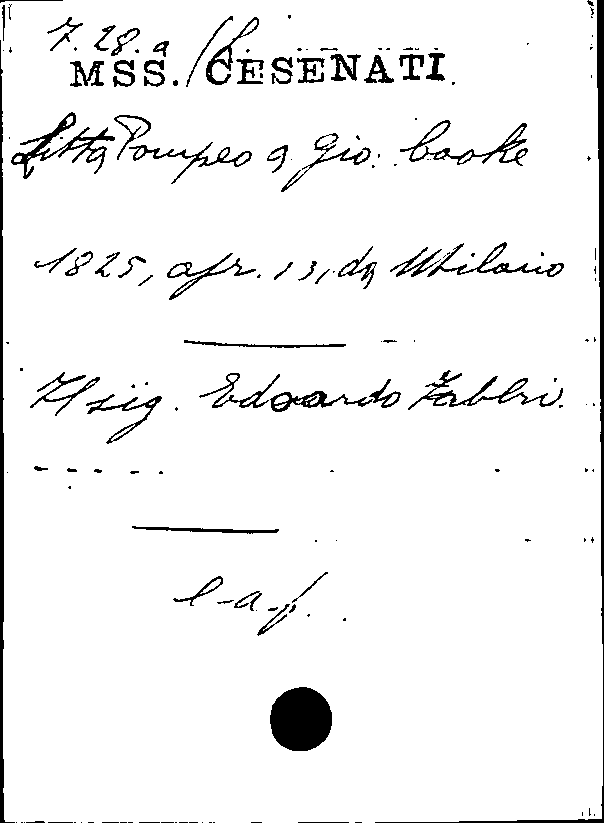 7. 28. a
MSS. CESENATI
Litta Pompeo a Gio: Cooke
1825, apr. 13, da Milano
Il sig. Edoardo Fabbri.
- - - - -
l-a-f.